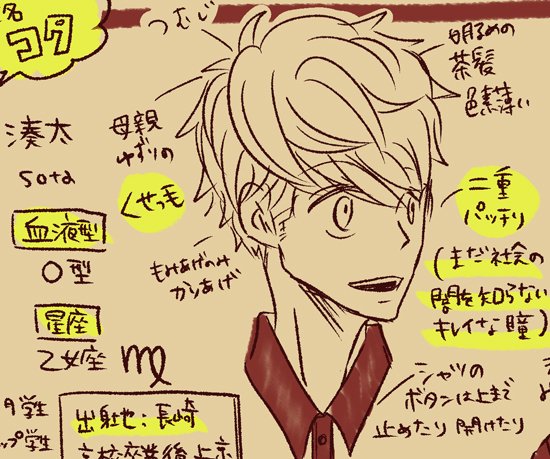 名
コタ
つむじ
明るめの
茶髪
色素薄い
湊太
sota
母親
ゆずりの
くせっ毛
血液型
O型
もみあげのみ
かりあげ
二重
パッチリ
(まだ社会の
闇を知らない
キレイな瞳)
星座
乙女座 ♍
シャツの
ボタンは上まで
止めたり 開けたり
学生
ップ学生
出身地:長崎
高校卒業後上京